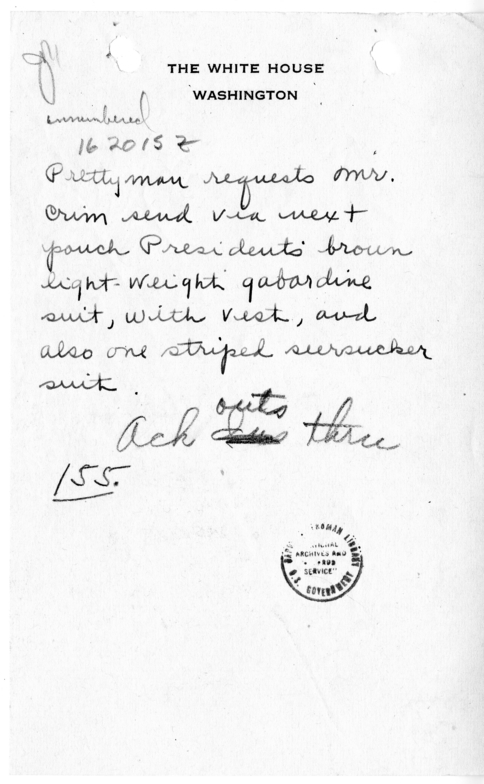 THE WHITE HOUSE
WASHINGTON
unnumbered
162015Z
Prettyman requests Mr.
Crim send via next
pouch Presidents brown
light-weight gabardine
suit, with vest, and
also one striped seersucker
suit.
outs
Ack thru
155.
TRUMAN LIBRARY
ARCHIVES AND
SERVICE"
U.S. GOVERNMENT